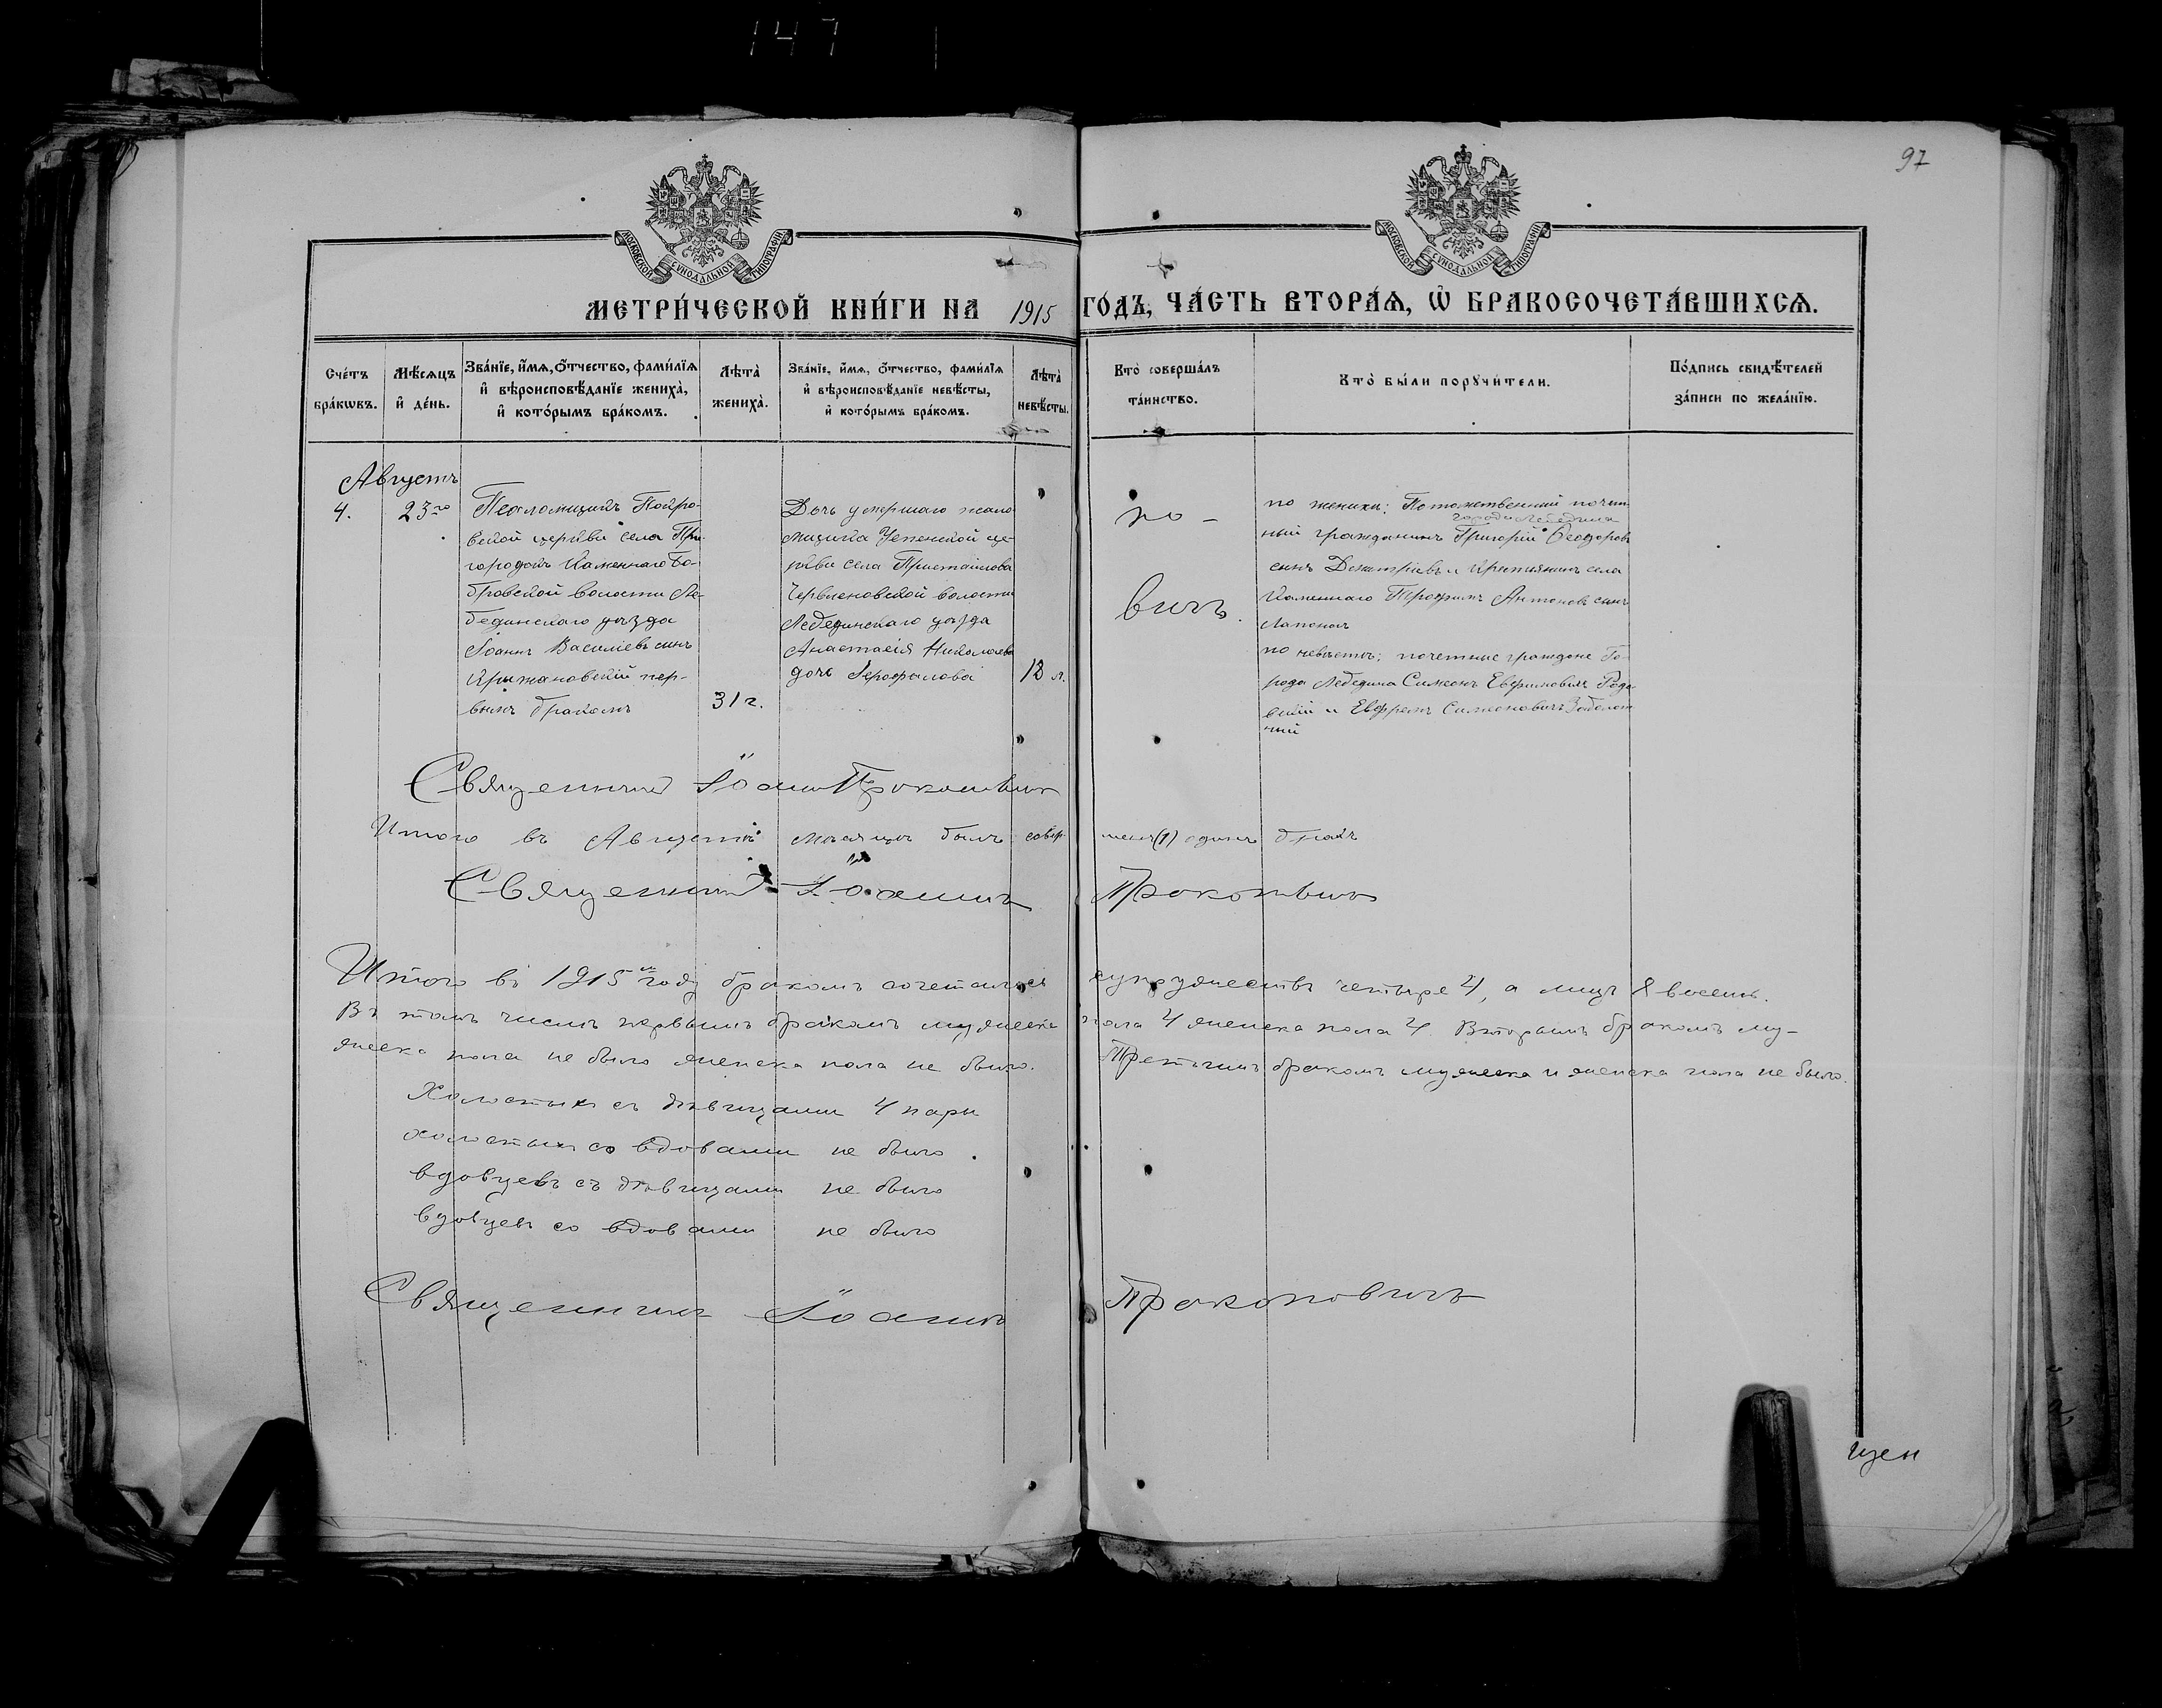 147
97
МОСКОВСКОЙ СѴНОДАЛЬНОЙ ТИПОГРАФІИ
МОСКОВСКОЙ СѴНОДАЛЬНОЙ ТИПОГРАФІИ
МЕТРИ́ЧЕСКОЙ КНИ́ГИ НА 1915 ГО́ДЪ, ЧА́СТЬ ВТОРА́Я, Ѡ БРАКОСОЧЕТА́ВШИХСЯ.
Сче́тъ
бра́кѡвъ.
Мѣ́сяцъ
и҆ де́нь.
Зва́нїе, и҆́мя, ѻ҆́тчество, фами́лїя
и҆ вѣроисповѣ́данїе жениха̀,
и҆ кото́рымъ бра́комъ.
Лѣта̀
жениха̀.
Зва́нїе, и҆́мя, ѻ҆́тчество, фами́лїя
и҆ вѣроисповѣ́данїе невѣ́сты,
и҆ кото́рымъ бра́комъ.
Лѣта̀
невѣ́сты.
Кто̀ соверша́лъ
та́инство.
Кто̀ бы́ли порꙋчи́тели.
По́дпись свидѣ́телей
за́писи по жела́нїю.
Августъ
4.
23го
Псаломщикъ Покро-
вской церкви села При-
городка Каменнаго Бо-
бровской волости Ле-
бединскаго уѣзда
Іоаннъ Василіевъ сынъ
Крыжановскій пер-
вымъ бракомъ
31 г.
Дочь умершаго псало
мщика Успенской це-
ркви села Пристайлова
Червленовской волости
Лебединскаго уѣзда
Анастасія Николаева
дочь
18 л.
по-
вичъ.
по женихѣ: Потомственный почет
города Лебедина
ный гражданинъ Григорій Ѳеодоровъ
сынъ Дмитріевъ и крестьянинъ села
Каменнаго Трофимъ Антоновъ сынъ
по невѣстѣ: почетные граждане Го-
рода Лебедина Симеонъ Евфимовичъ
и Ефремъ Симеоновичъ Заболот
ный
Священникъ Іоаннъ Прокоповичъ
Итого въ Августѣ мѣсяцѣ былъ совер- шенъ (1) одинъ бракъ
Священникъ Іоаннъ Прокоповичъ
Итого въ 1915 мъ году бракомъ сочеталось супружествъ четыре 4, а лицъ 8 восемь.
Въ томъ числѣ первымъ бракомъ мужеска пола 4 женска пола 4. Вторымъ бракомъ му-
жеска пола не было женска пола не было. Третьимъ бракомъ мужеска и женска пола не было.
Холостыхъ съ дѣвицами 4 пары
холостыхъ со вдовами не было.
вдовцевъ съ дѣвицами не было
вдовцевъ со вдовами не было
Священникъ Іоаннъ Прокоповичъ